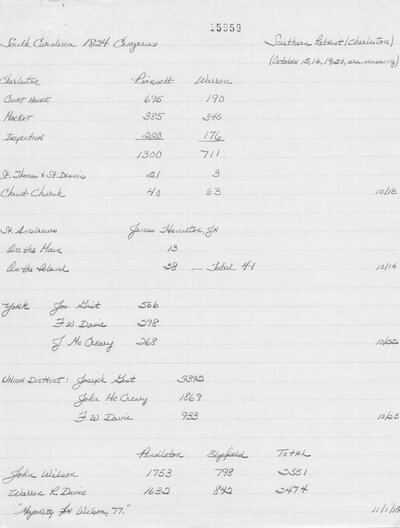 15059
South Carolina 1824 Congress Southern Patriot (Charleston)
(October 15, 16, 19, 20, are missing)
Charleston Poinsett Warren
Court House 695 190
Market 385 345
Inspection 220 176
1300 711
St. Thomas & St. Dennis 21 3
Christ Church 40 63 10/13
St. Andrews James Hamilton, Jr
On the Main 13
On the Island 28 – Total 41 10/14
York Jos. Gist 566
F W Davie 298
J. McCreary 268 10/22
Union District: Joseph Gist 3392
John McCreary 1869
F W Davie 933 10/25
Pendleton Edgefield Total
John Wilson 1753 798 2551
Warren R. Davis 1632 842 2474
"Majority for Wilson, 77." 11/1/